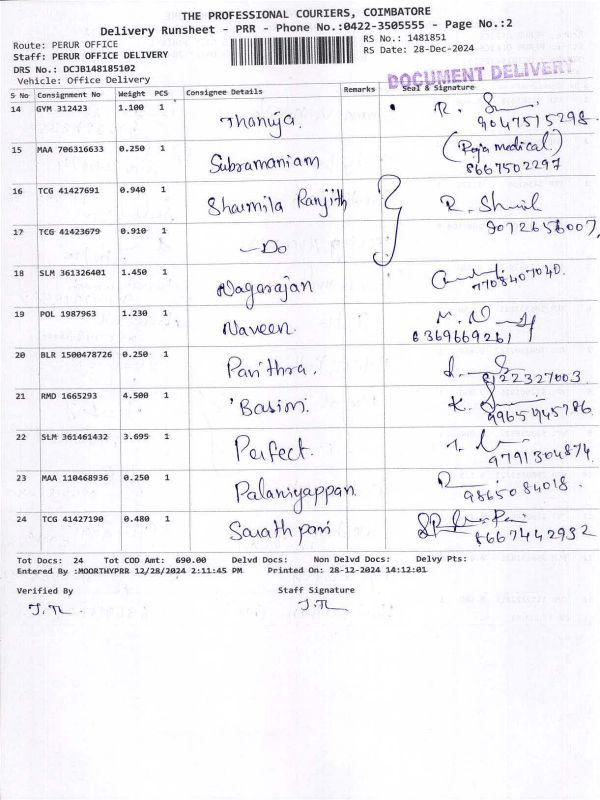 THE PROFESSIONAL COURIERS, COIMBATORE
Delivery Runsheet - PRR - Phone No.:0422-3505555 - Page No.:2
Route: PERUR OFFICE
RS No.: 1481851
Staff: PERUR OFFICE DELIVERY
RS Date: 28-Dec-2024
DRS No.: DCJB148185102
Vehicle: Office Delivery
DOCUMENT DELIVERY
S No Consignment No Weight PCS Consignee Details Remarks Seal & Signature
14 GYM 312423 1.100 1 Thanuja.
9047515298
15 MAA 706316633 0.250 1 Subramaniam (Raja medical.)
8667502297
16 TCG 41427691 0.940 1 Sharmila Ranjith
17 TCG 41423679 0.910 1 —Do 9072656007
18 SLM 361326401 1.450 1 Nagarajan 7708407040.
19 POL 1987963 1.230 1 Naveen.
6369669261
20 BLR 1500478726 0.250 1 Pavithra.
8122327003
21 RMD 1665293 4.500 1 Basion.
9965945786
22 SLM 361461432 3.695 1 Perfect.
9791304874
23 MAA 110468936 0.250 1 Palaniyappan
9865084018.
24 TCG 41427190 0.480 1 Sarath pari
8667442932
Tot Docs: 24 Tot COD Amt: 690.00 Delvd Docs: Non Delvd Docs: Delvy Pts:
Entered By :MOORTHYPRR 12/28/2024 2:11:45 PM Printed On: 28-12-2024 14:12:01
Verified By Staff Signature